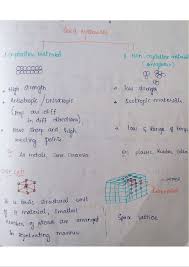 Solid materials
Crystalline material
Non crystalline material
(amorphous)
• High strength
• Low strength
• Anisotropic / anisotropic
• Isotropic materials
(Prop are diff
in diff directions)
• Have sharp and high
melting points
• low & range of temp
• Ex metals, Some Ceramics
Ex- plastic, Rubber
Unit cell
It is basic structural unit
of a material, smallest
number of atoms are arranged
in repeating manner
Space lattice